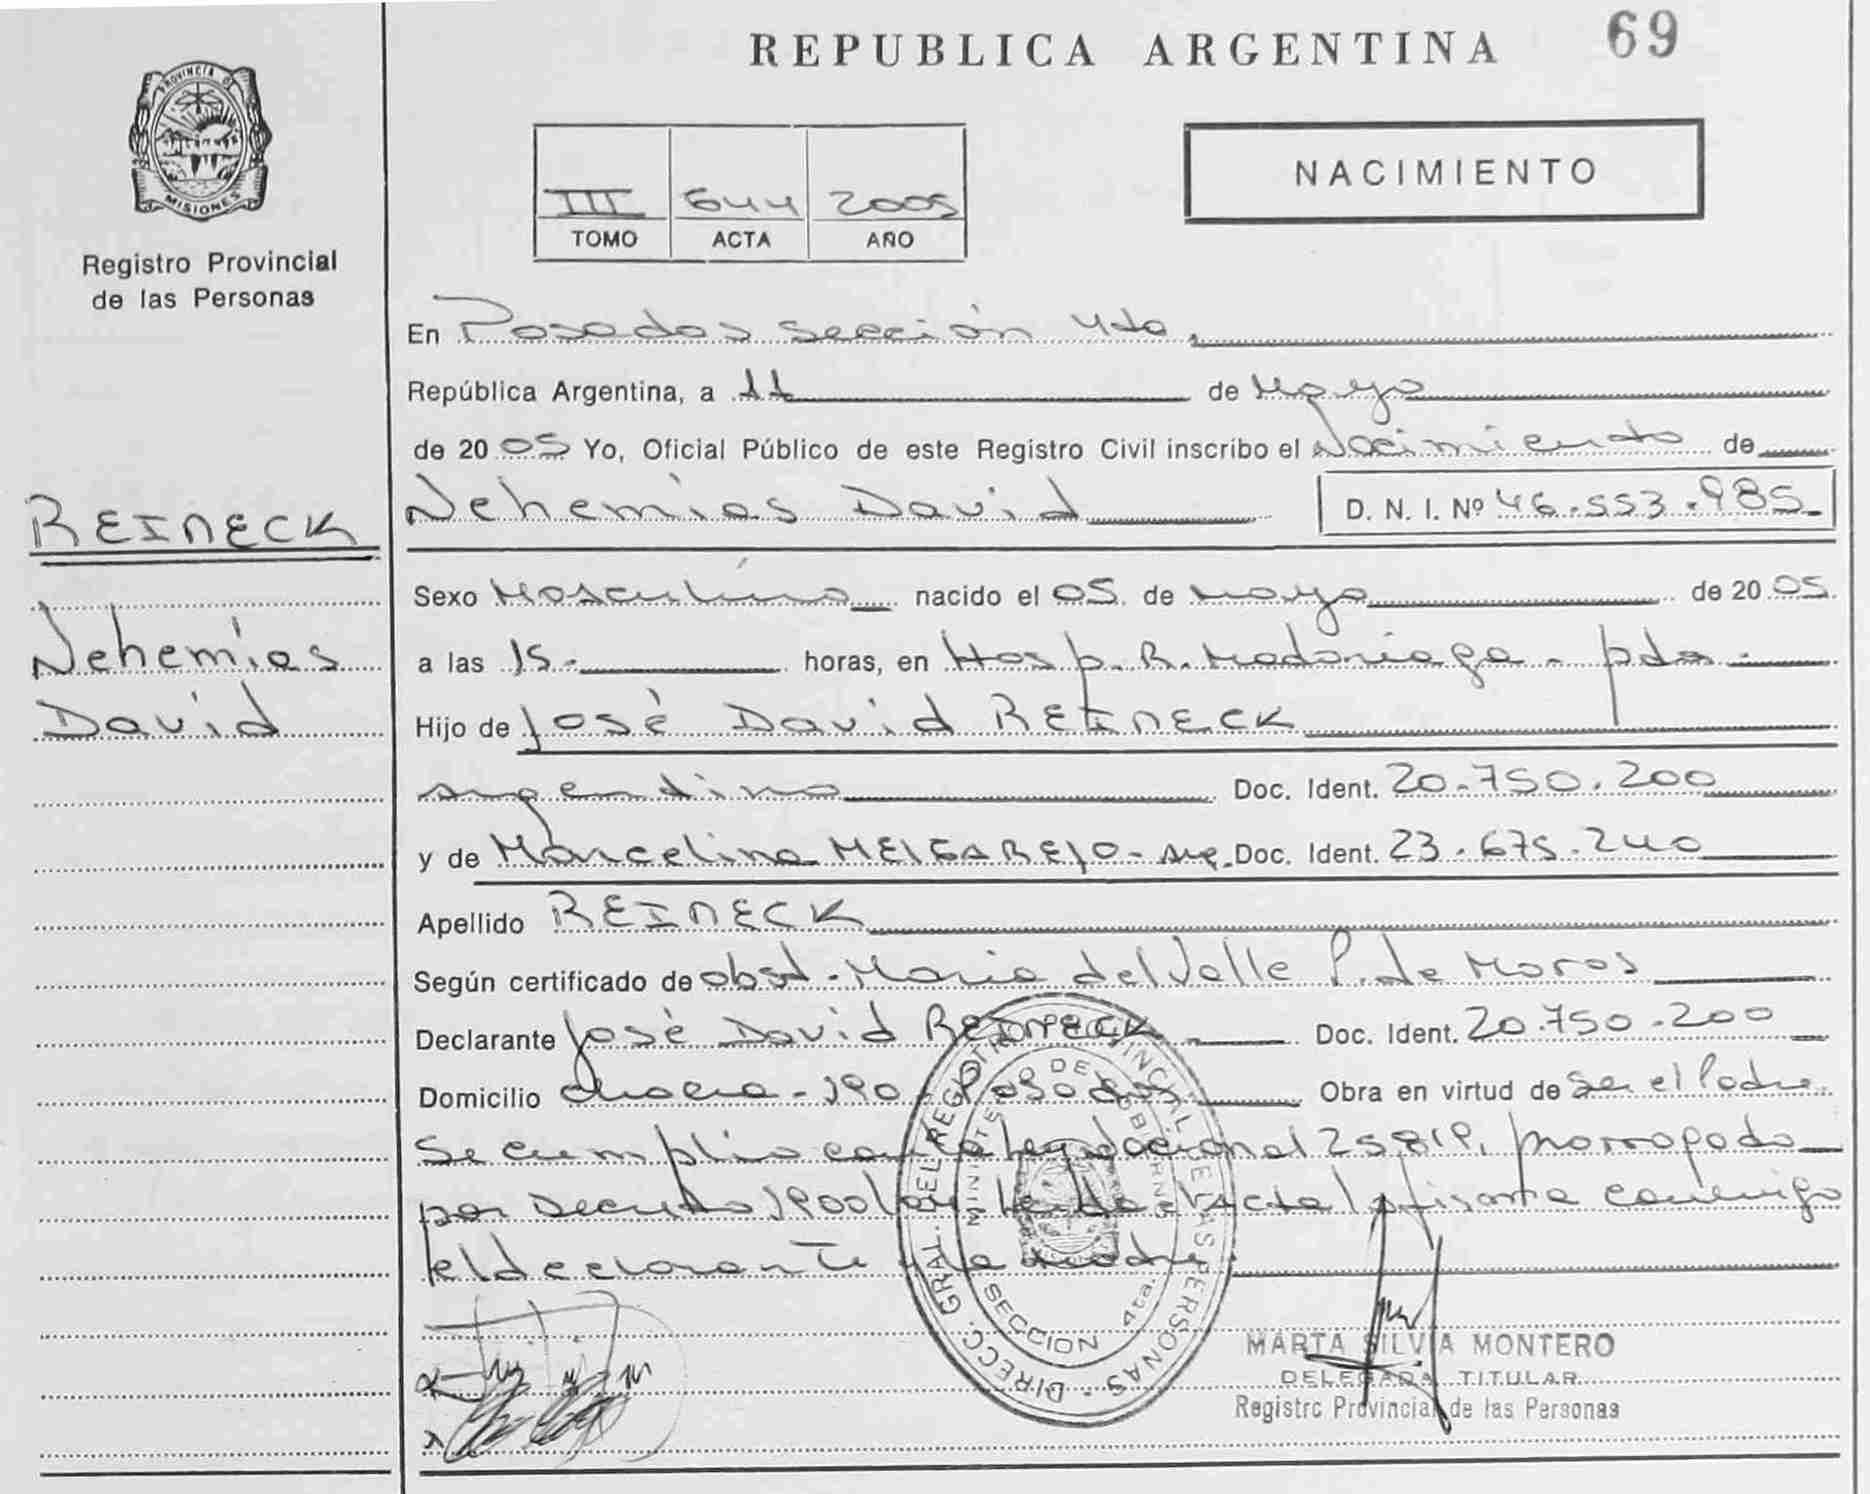 REPUBLICA ARGENTINA 69
PROVINCIA DE
MISIONES
Registro Provincial
de las Personas
NACIMIENTO
III 644 2005
TOMO ACTA AÑO
En Posadas sección 4ta
República Argentina, a 11 de Mayo
de 2005 Yo, Oficial Público de este Registro Civil inscribo el Nacimiento de
REINECK
Nehemías David D. N. I. Nº 46.553.985
Sexo Masculino nacido el 05 de mayo de 2005
Nehemías
David
a las 15- horas, en Hosp. R. Madariaga - pdas -
Hijo de José David REINECK
argentino Doc. Ident. 20.750.200
y de Marcelina MELGAREJO - arg. Doc. Ident. 23.675.240
Apellido REINECK
Según certificado de obst. María del Valle P. de Moros
Declarante José David REINECK Doc. Ident. 20.750.200
Domicilio chacra - 190 - Posadas Obra en virtud de ser el Padre
Se cumplio con la ley nacional 25819, prorrogado
por Decreto 1900/04 Leída el Acta la firma conmigo
el declarante y la madre
DIRECC. GRAL. DEL REGISTRO PROVINCIAL DE LAS PERSONAS
MINISTERIO DE GOBIERNO
SECCION 4ta.
MARTA SILVIA MONTERO
DELEGADA TITULAR
Registro Provincial de las Personas